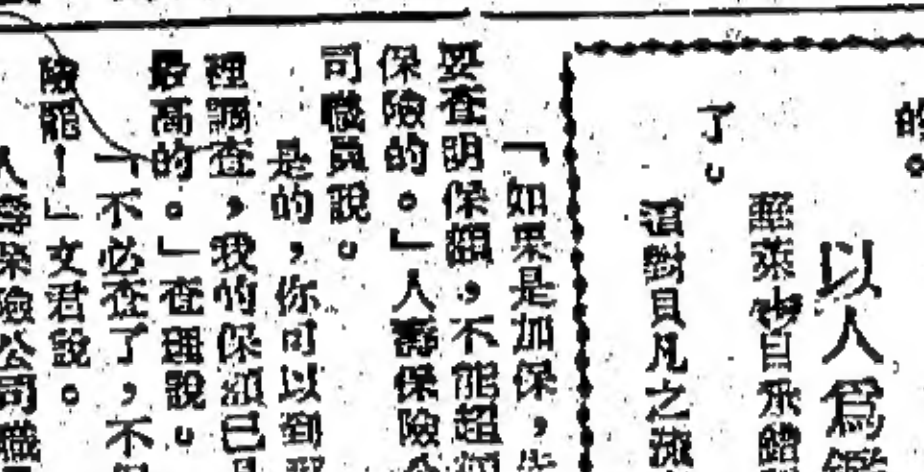 的。
以人爲鑑
自承錯
了。
對貝凡之
「如果是加保，
要查明保額，不能超過
保險的。」人壽保險公
司職員說。
是的，你可以到那
裡調查，我的保額已是
最高的。」查理說。
「不必查了，不
險罷！」文君說。
人壽保險公司職